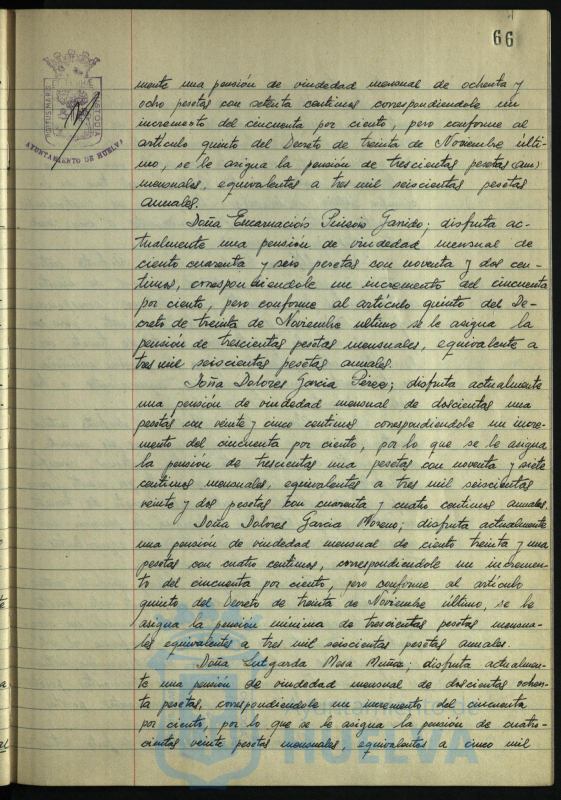 66
AYUNTAMIENTO DE HUELVA
mente una pensión de viudedad mensual de ochenta y
ocho pesetas con setenta centimos correspondiendole un
incremento del cincuenta por ciento, pero conforme al
artículo quinto del Decreto de treinta de Noviembre últi-
mo, se le asigna la pensión de trescientas pesetas
mensuales, equivalentes a tres mil seiscientas pesetas
anuales.
Doña Encarnación Garrido; disfruta ac-
tualmente una pensión de viudedad mensual de
ciento cuarenta y seis pesetas con noventa y dos cen-
timos, correspondiendole un incremento del cincuenta
por ciento, pero conforme al artículo quinto del De-
creto de treinta de Noviembre ultimo se le asigna la
pensión de trescientas pesetas mensuales, equivalente a
tres mil seiscientas pesetas anuales.
Doña Dolores Garcia Pérez; disfruta actualmente
una pensión de viudedad mensual de doscientas una
pesetas con veinte y cinco centimos correspondiendole un incre-
mento del cincuenta por ciento, por lo que se le asigna
la pensión de trescientas una pesetas con noventa y siete
centimos mensuales, equivalentes a tres mil seiscientas
veinte y dos pesetas con cuarenta y cuatro centimos anuales.
Doña Dolores Garcia Moreno; disfruta actualmente
una pensión de viudedad mensual de ciento treinta y una
pesetas con cuatro centimos, correspondiendole un incremen-
to del cincuenta por ciento, pero conforme al artículo
quinto del Decreto de treinta de Noviembre último, se le
asigna la pensión minima de trescientas pesetas mensua-
les equivalentes a tres mil seiscientas pesetas anuales.
Doña Lutgarda Mesa Muñoz; disfruta actualmen-
te una pensión de viudedad mensual de doscientas ochen-
ta pesetas, correspondiendole un incremento del cincuenta
por ciento, por lo que se le asigna la pensión de cuatro-
cientas veinte pesetas mensuales, equivalentes a cinco mil
HUELVA